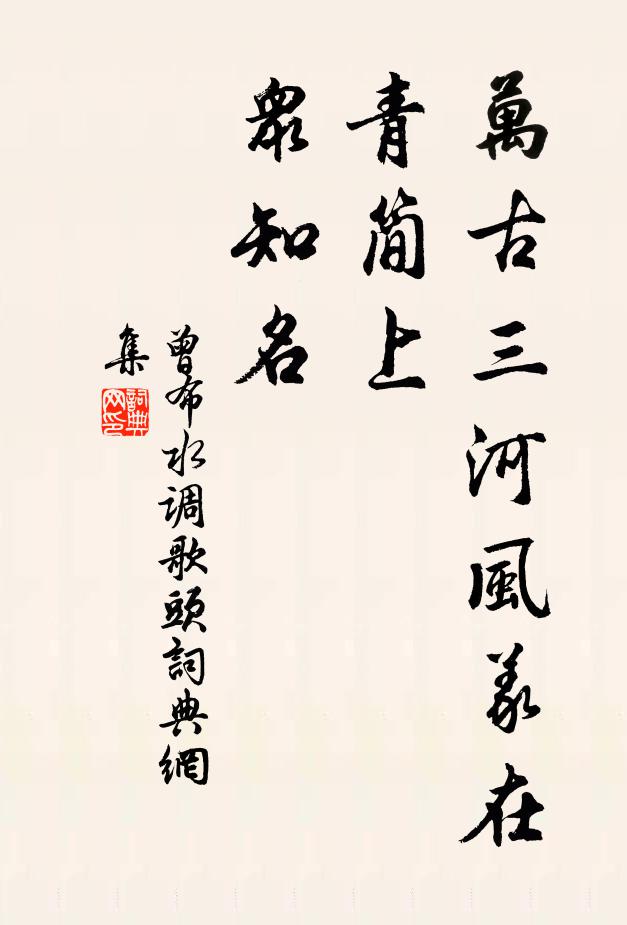 萬古三河風義在
青简上
眾知名
曾布水调歌頭詞典網
集
詞典
网印